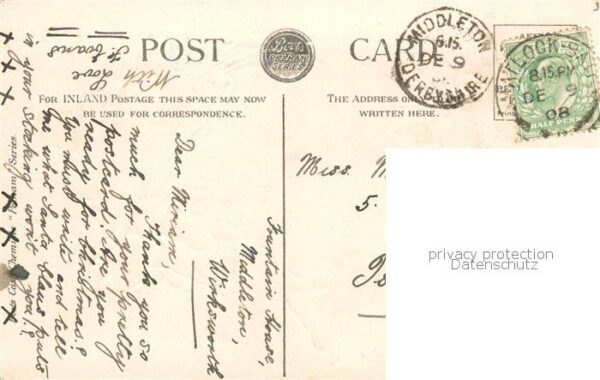 POST CARD
Boots
"PELHAM"
SERIES
FOR INLAND POSTAGE THIS SPACE MAY NOW
BE USED FOR CORRESPONDENCE.
THE ADDRESS ON
WRITTEN HERE.
MIDDLETON
6.15
DE 9
DERBYSHIRE
MATLOCK-BATH
8.15 PM
DE 9
08
Fountain House,
Middleton,
Wirksworth
Dear Miriam,
Thank you so
much for your pretty
postcard. Are you
ready for Christmas?
You must write and tell
me what Santa Claus puts
in your stocking won't you!?
With
Love
Evans
x x x x x x
"Pelham" Series.
Miss M
5.
privacy protection
Datenschutz